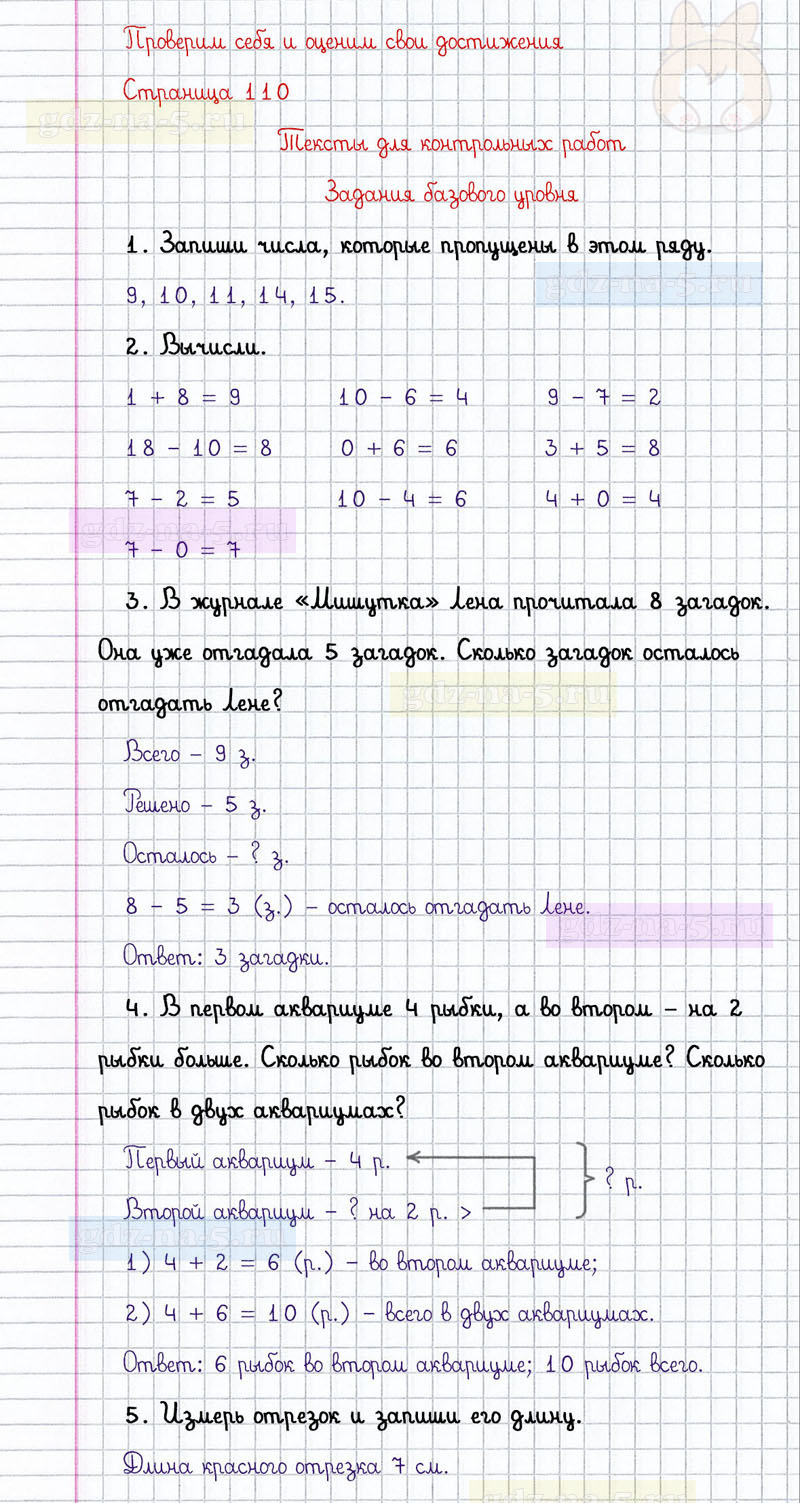 Проверим себя и оценим свои достижения
Страница 110
gdz-na-5.ru
Тексты для контрольных работ
Задания базового уровня
1. Запиши числа, которые пропущены в этом ряду.
gdz-na-5.ru
9, 10, 11, 14, 15.
2. Вычисли.
1 + 8 = 9 10 - 6 = 4 9 - 7 = 2
18 - 10 = 8 0 + 6 = 6 3 + 5 = 8
7 - 2 = 5 10 - 4 = 6 4 + 0 = 4
gdz-na-5.ru
7 - 0 = 7
3. В журнале «Мишутка» Лена прочитала 8 загадок.
Она уже отгадала 5 загадок. Сколько загадок осталось
gdz-na-5.ru
отгадать Лене?
Всего – 9 з.
Решено – 5 з.
Осталось – ? з.
8 - 5 = 3 (з.) – осталось отгадать Лене.
gdz-na-5.ru
Ответ: 3 загадки.
4. В первом аквариуме 4 рыбки, а во втором – на 2
рыбки больше. Сколько рыбок во втором аквариуме? Сколько
рыбок в двух аквариумах?
Первый аквариум – 4 р.
? р.
Второй аквариум – ? на 2 р. >
gdz-na-5.ru
1) 4 + 2 = 6 (р.) – во втором аквариуме;
2) 4 + 6 = 10 (р.) – всего в двух аквариумах.
Ответ: 6 рыбок во втором аквариуме; 10 рыбок всего.
5. Измерь отрезок и запиши его длину.
Длина красного отрезка 7 см.
gdz-na-5.ru